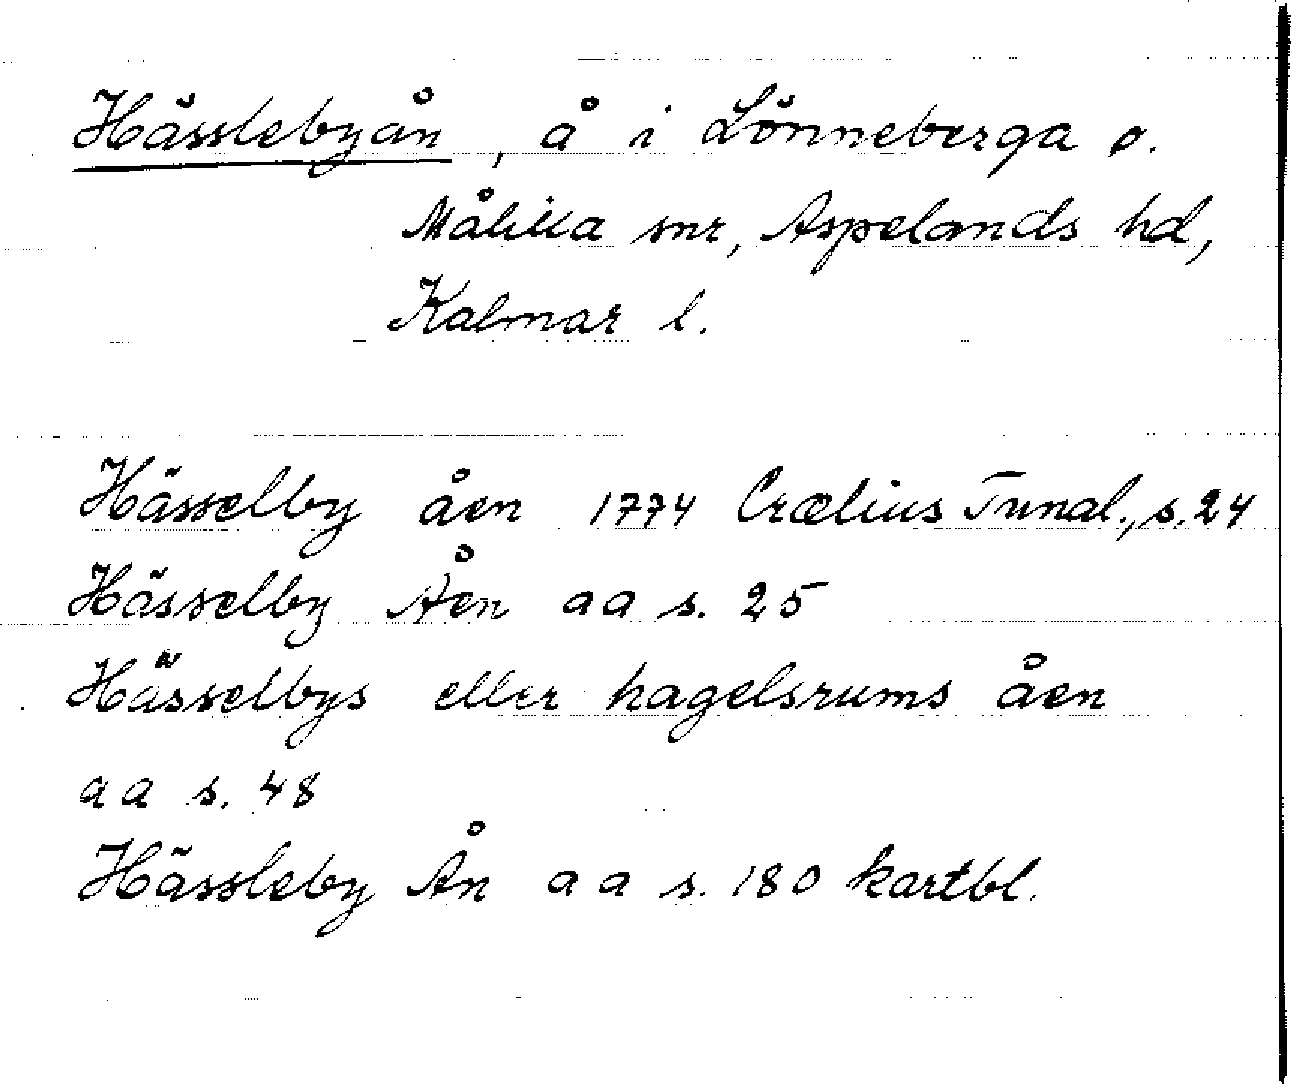 Hässlebyån, å i Lönneberga o.
Målilla snr, Aspelands hd,
Kalmar l.
Hässelby åen 1774 Crælius Tunal., s. 24
Hässelby Åen aa s. 25
Hässelbys eller hagelsrums åen
aa s. 48
Hässleby Ån aa s. 180 kartbl.